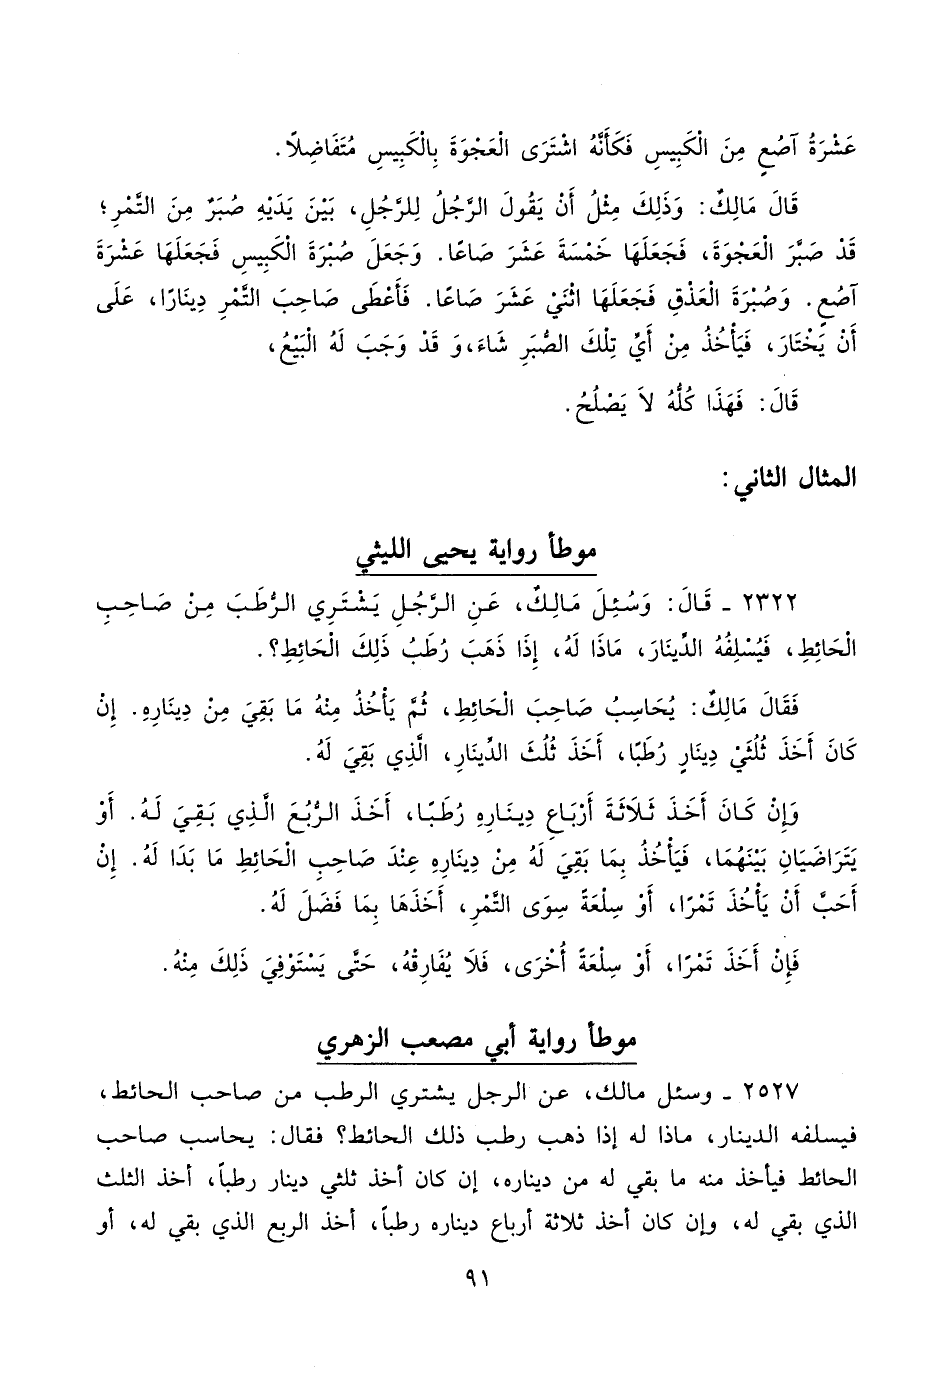 عَشْرَةُ آصُعٍ مِنَ الْكَبِيسِ فَكَأَنَّهُ اشْتَرَى الْعَجْوَةَ بِالْكَبِيسِ مُتَفَاضِلًا.
قَالَ مَالِكٌ: وَذَلِكَ مِثْلُ أَنْ يَقُولَ الرَّجُلُ لِلرَّجُلِ، بَيْنَ يَدَيْهِ صُبَرٌ مِنَ التَّمْرِ؛
قَدْ صَبَّرَ الْعَجْوَةَ، فَجَعَلَهَا خَمْسَةَ عَشَرَ صَاعًا. وَجَعَلَ صُبْرَةَ الْكَبِيسِ فَجَعَلَهَا عَشْرَةَ
آصُعٍ. وَصُبْرَةَ الْعَذْقِ فَجَعَلَهَا اثْنَيْ عَشَرَ صَاعًا. فَأَعْطَى صَاحِبَ التَّمْرِ دِينَارًا، عَلَى
أَنْ يَخْتَارَ، فَيَأْخُذُ مِنْ أَيِّ تِلْكَ الصُّبَرِ شَاءَ، وَ قَدْ وَجَبَ لَهُ الْبَيْعُ،
قَالَ: فَهَذَا كُلُّهُ لاَ يَصْلُحُ.
المثال الثاني:
موطأ رواية يحيى الليثي
٢٣٢٢ ـ قَالَ: وَسُئِلَ مَالِكٌ، عَنِ الرَّجُلِ يَشْتَرِي الرُّطَبَ مِنْ صَاحِبِ
الْحَائِطِ، فَيُسْلِفُهُ الدِّينَارَ، مَاذَا لَهُ، إِذَا ذَهَبَ رُطَبُ ذَلِكَ الْحَائِطِ؟.
فَقَالَ مَالِكٌ: يُحَاسِبُ صَاحِبَ الْحَائِطِ، ثُمَّ يَأْخُذُ مِنْهُ مَا بَقِيَ مِنْ دِينَارِهِ. إِنْ
كَانَ أَخَذَ ثُلُثَيْ دِينَارٍ رُطَبًا، أَخَذَ ثُلُثَ الدِّينَارِ، الَّذِي بَقِيَ لَهُ.
وَإِنْ كَانَ أَخَذَ ثَلَاثَةَ أَرْبَاعِ دِينَارِهِ رُطَبًا، أَخَذَ الرُّبُعَ الَّذِي بَقِيَ لَهُ. أَوْ
يَتَرَاضَيَانِ بَيْنَهُمَا، فَيَأْخُذُ بِمَا بَقِيَ لَهُ مِنْ دِينَارِهِ عِنْدَ صَاحِبِ الْحَائِطِ مَا بَدَا لَهُ. إِنْ
أَحَبَّ أَنْ يَأْخُذَ تَمْرًا، أَوْ سِلْعَةً سِوَى التَّمْرِ، أَخَذَهَا بِمَا فَضَلَ لَهُ.
فَإِنْ أَخَذَ تَمْرًا، أَوْ سِلْعَةً أُخْرَى، فَلَا يُفَارِقْهُ، حَتَّى يَسْتَوْفِيَ ذَلِكَ مِنْهُ.
موطأ رواية أبي مصعب الزهري
٢٥٢٧ ـ وسئل مالك، عن الرجل يشتري الرطب من صاحب الحائط،
فيسلفه الدينار، ماذا له إذا ذهب رطب ذلك الحائط؟ فقال: يحاسب صاحب
الحائط فيأخذ منه ما بقي له من ديناره، إن كان أخذ ثلثي دينار رطباً، أخذ الثلث
الذي بقي له، وإن كان أخذ ثلاثة أرباع ديناره رطباً، أخذ الربع الذي بقي له، أو
٩١